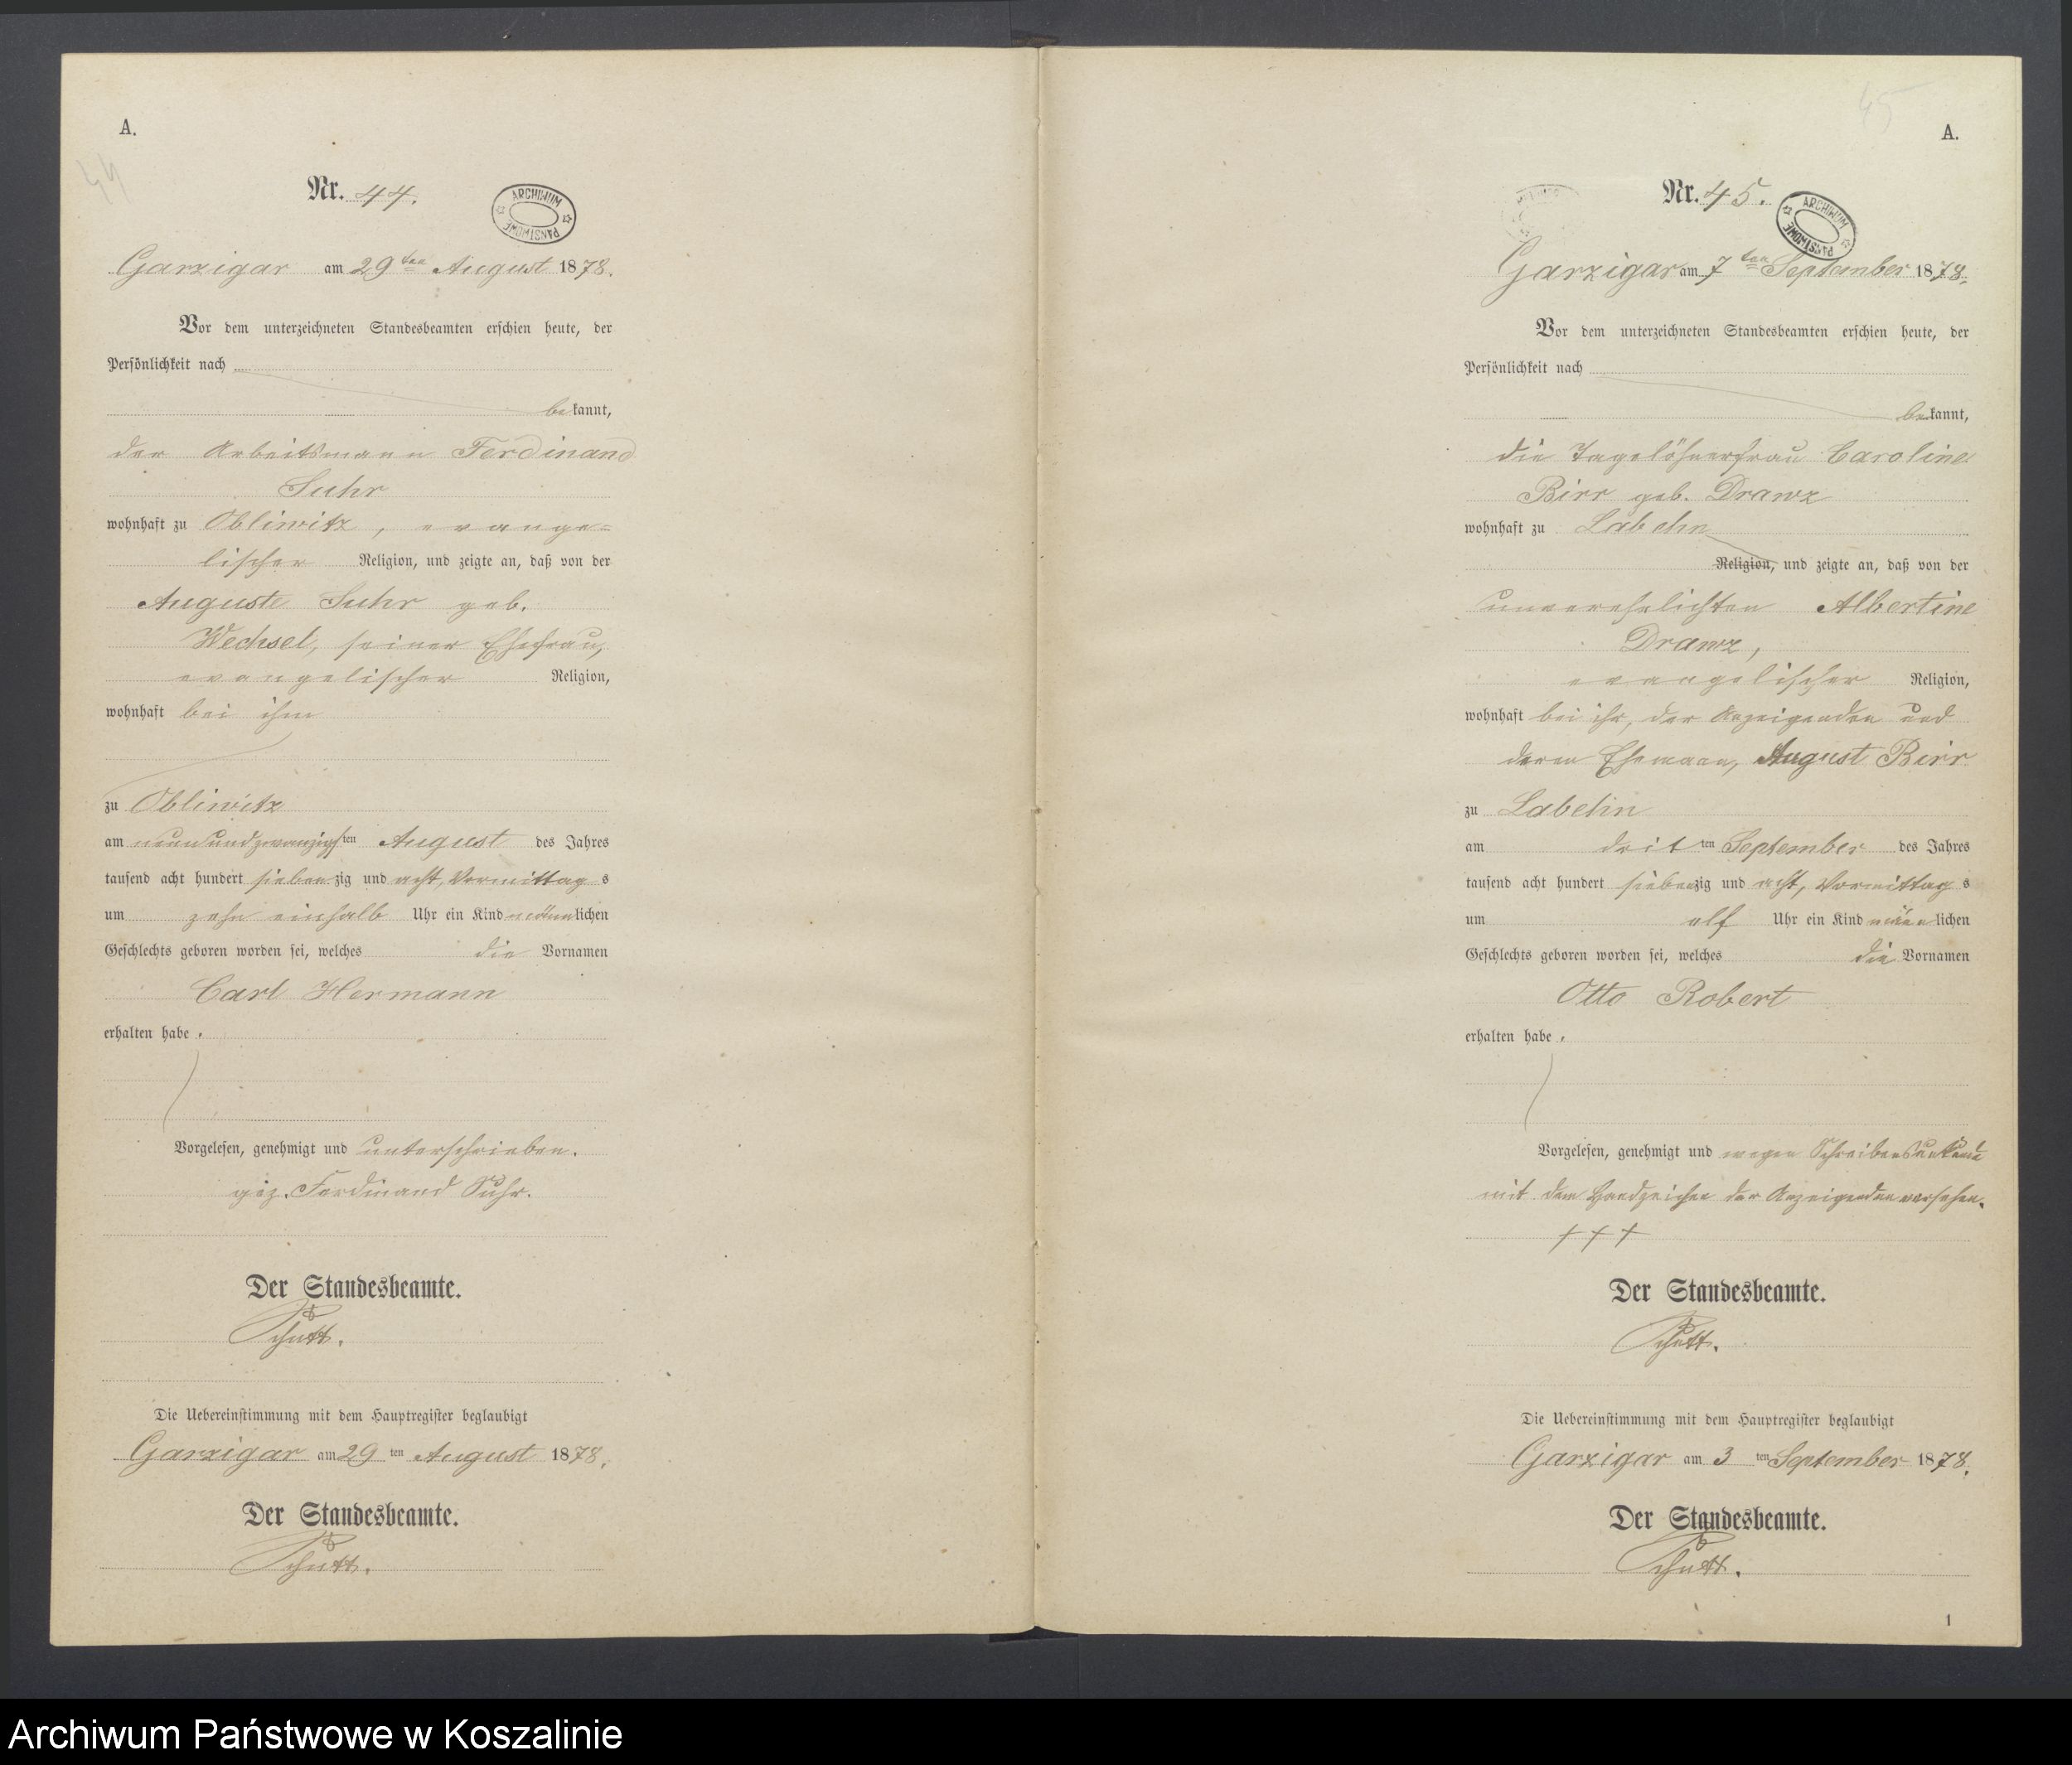 A.
44
Nr. 44.
ARCHIWUM PAŃSTWOWE
Garzigar am 29ten August 1878.
Vor dem unterzeichneten Standesbeamten erschien heute, der
Persönlichkeit nach
bekannt,
der Arbeitsmann Ferdinand
Suhr
wohnhaft zu Obliwitz, evange-
lischer Religion, und zeigte an, daß von der
Auguste Suhr geb.
Wechsel, seiner Ehefrau,
evangelischer Religion,
wohnhaft bei ihm
zu Obliwitz
am neunundzwanzigsten August des Jahres
tausend acht hundert siebenzig und acht, Vormittags
um zehn einhalb Uhr ein Kind männlichen
Geschlechts geboren worden sei, welches die Vornamen
Carl Hermann
erhalten habe.
Vorgelesen, genehmigt und unterschrieben.
gez. Ferdinand Suhr.
Der Standesbeamte.
Schutt.
Die Uebereinstimmung mit dem Hauptregister beglaubigt
Garzigar am 29ten August 1878.
Der Standesbeamte.
Schutt.
45
A.
Nr. 45.
ARCHIWUM PAŃSTWOWE
Garzigar am 7ten September 1878.
Vor dem unterzeichneten Standesbeamten erschien heute, der
Persönlichkeit nach
bekannt,
die Tagelöhnerfrau Caroline
Birr geb. Drawz
wohnhaft zu Labehn
Religion, und zeigte an, daß von der
unverehelichten Albertine
Drawz,
evangelischer Religion,
wohnhaft bei ihr, der Anzeigenden und
deren Ehemann, August Birr
zu Labehn
am dritten September des Jahres
tausend acht hundert siebenzig und acht, Vormittags
um elf Uhr ein Kind männlichen
Geschlechts geboren worden sei, welches die Vornamen
Otto Robert
erhalten habe.
Vorgelesen, genehmigt und wegen Schreibensunkunde
mit dem Handzeichen der Anzeigenden versehen.
+++
Der Standesbeamte.
Schutt.
Die Uebereinstimmung mit dem Hauptregister beglaubigt
Garzigar am 3ten September 1878.
Der Standesbeamte.
Schutt.
1
Archiwum Państwowe w Koszalinie